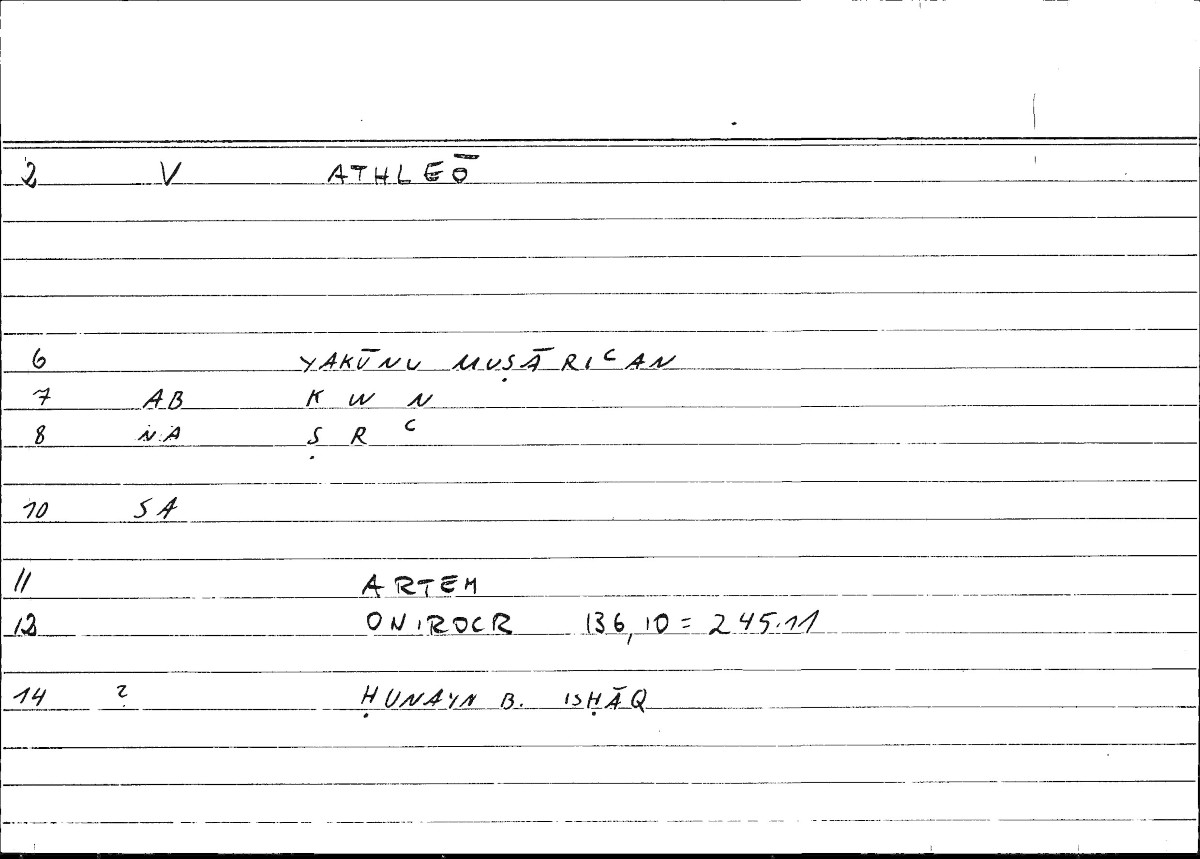 2 V ATHLEŌ
6 YAKŪNU MUṢĀRIᶜAN
7 AB K W N
8 NA Ṣ R ᶜ
10 SA
11 ARTEM
12 ONIROCR 136,10 = 245.11
14 2 ḤUNAYN B. ISḤĀQ